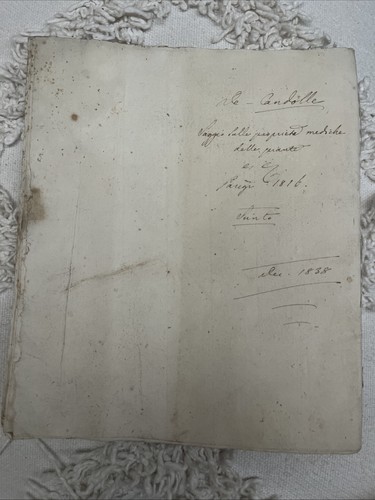 De-Candolle
Saggio sulle proprietà mediche
delle piante
Parigi 1816.
Sunto
1838